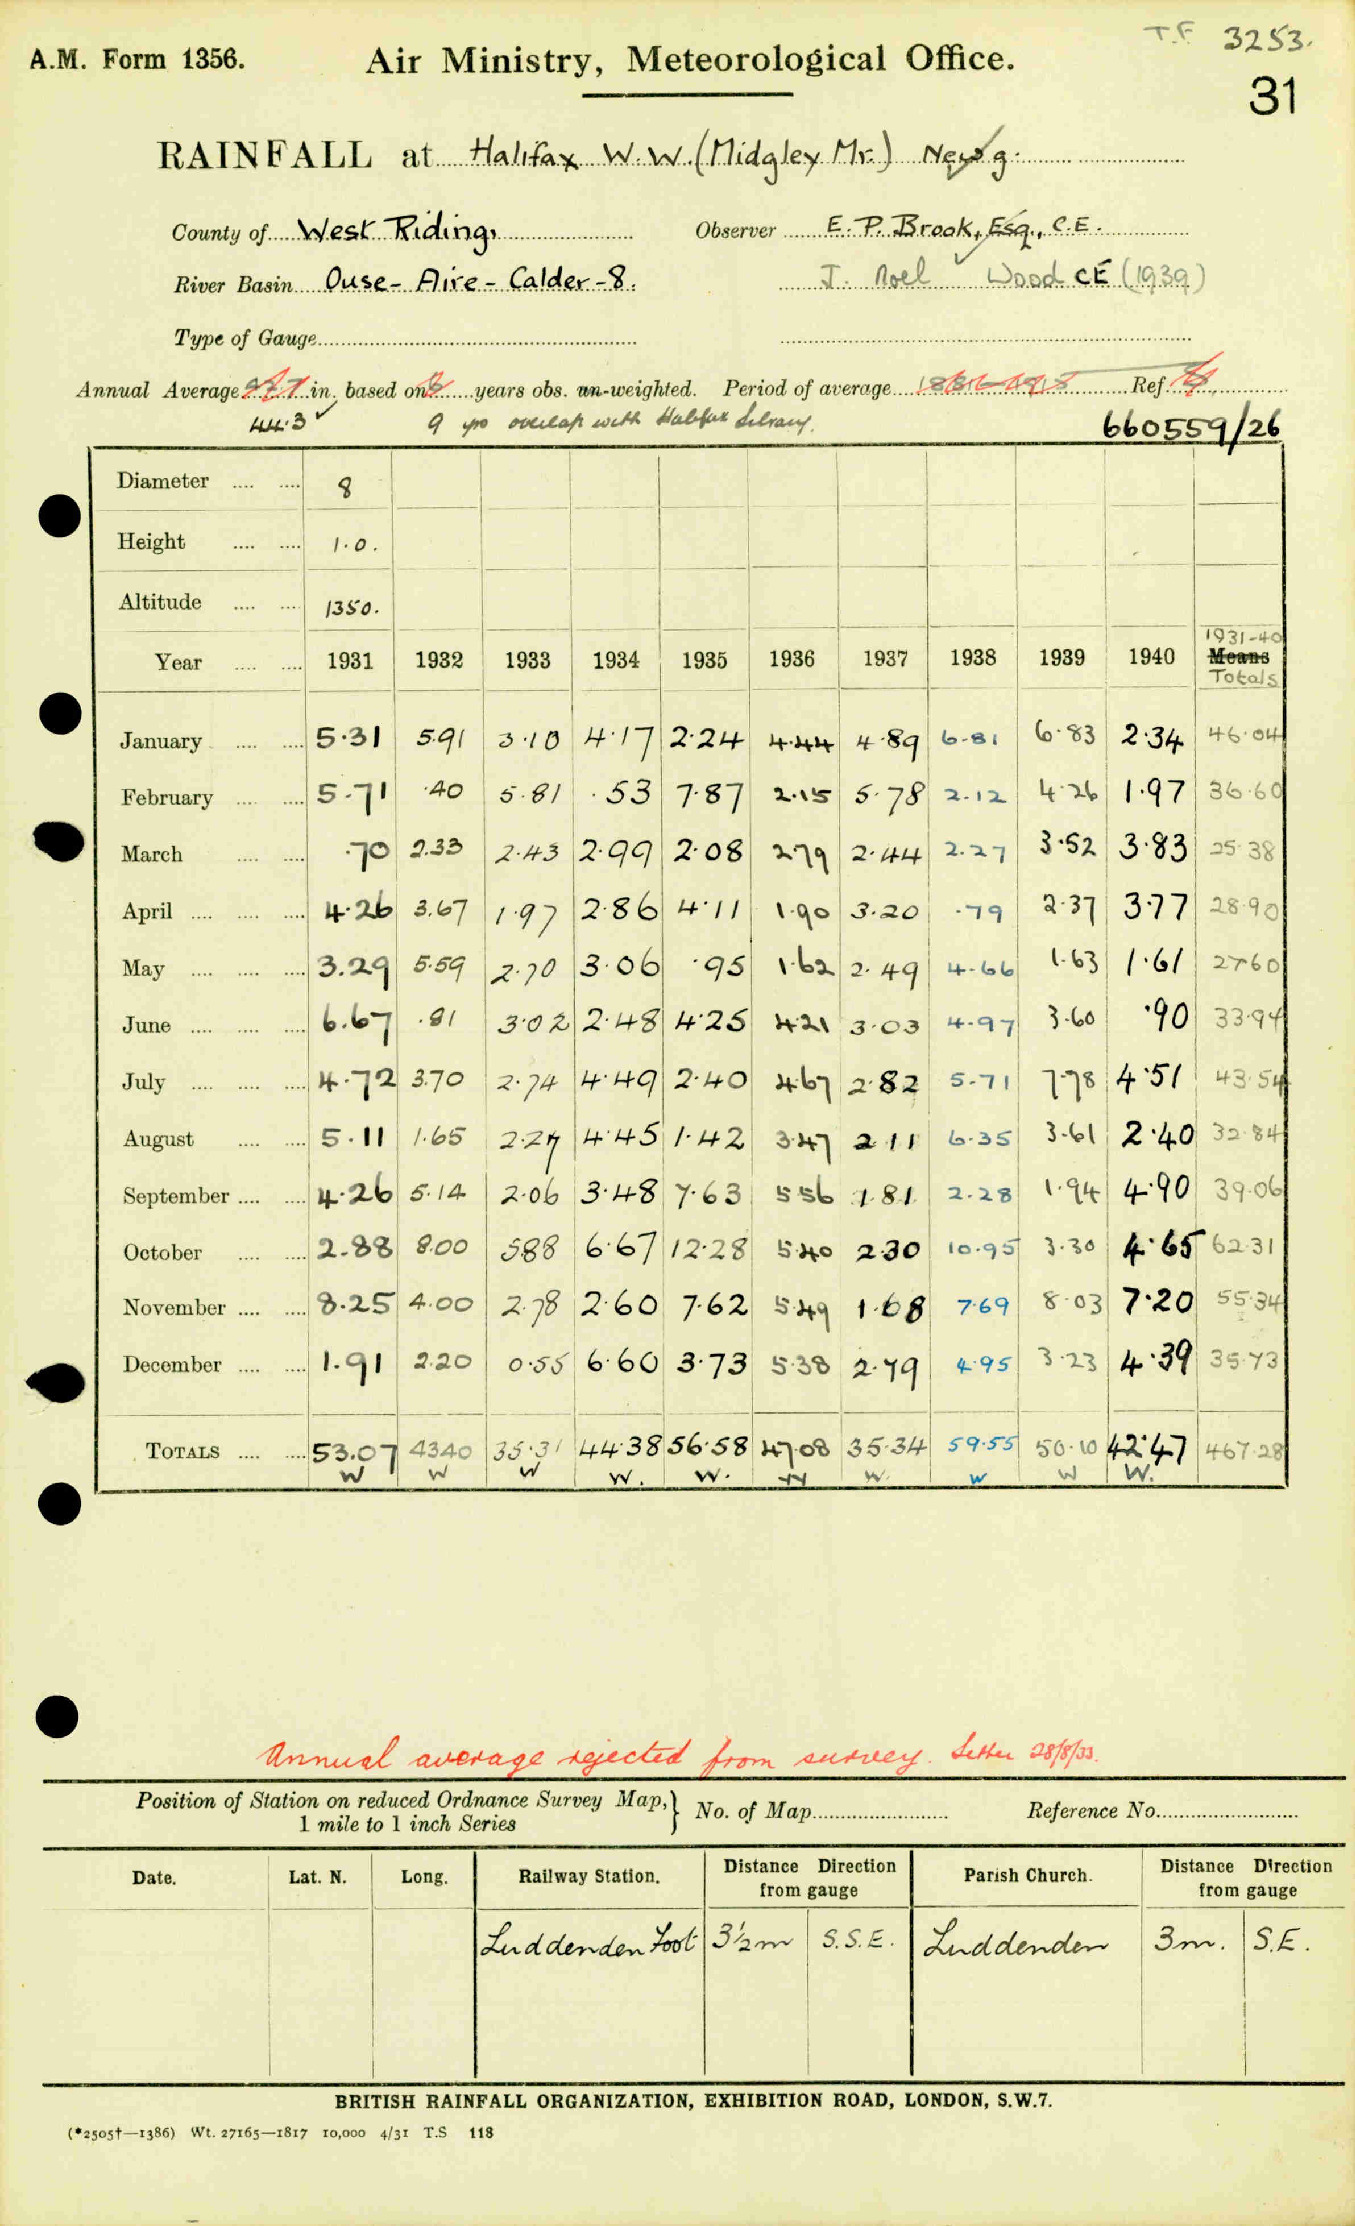 T.F 3253.
A.M. Form 1356. Air Ministry, Meteorological Office.
31
RAINFALL at Halifax W.W. (Midgley Mr.) New g.
County of West Riding, Observer E. P. Brook, Esq., C.E.
River Basin Ouse - Aire - Calder - 8. J. Noel Wood CE (1939)
Type of Gauge
Annual Average in. based on years obs. un-weighted. Period of average 1881-1915 Ref.
44.3 9 yrs overlap with Halifax Library. 660559/26
Diameter 8
Height 1.0.
Altitude 1350.
1931-40
Year 1931 1932 1933 1934 1935 1936 1937 1938 1939 1940 Means
Totals
January 5.31 5.91 3.10 4.17 2.24 4.44 4.89 6.81 6.83 2.34 46.04
February 5.71 .40 5.81 .53 7.87 2.15 5.78 2.12 4.26 1.97 36.60
March .70 2.33 2.43 2.99 2.08 2.79 2.44 2.27 3.52 3.83 25.38
April 4.26 3.67 1.97 2.86 4.11 1.90 3.20 .79 2.37 3.77 28.90
May 3.29 5.59 2.70 3.06 .95 1.62 2.49 4.66 1.63 1.61 27.60
June 6.67 .81 3.02 2.48 4.25 4.21 3.03 4.97 3.60 .90 33.94
July 4.72 3.70 2.74 4.49 2.40 4.67 2.82 5.71 7.78 4.51 43.54
August 5.11 1.65 2.27 4.45 1.42 3.47 2.11 6.35 3.61 2.40 32.84
September 4.26 5.14 2.06 3.48 7.63 5.56 1.81 2.28 1.94 4.90 39.06
October 2.88 8.00 5.88 6.67 12.28 5.40 2.30 10.95 3.30 4.65 62.31
November 8.25 4.00 2.78 2.60 7.62 5.49 1.68 7.69 8.03 7.20 55.34
December 1.91 2.20 0.55 6.60 3.73 5.38 2.79 4.95 3.23 4.39 35.73
TOTALS 53.07 43.40 35.31 44.38 56.58 47.08 35.34 59.55 50.10 42.47 467.28
W W W W. W. W W. W W W.
Annual average rejected from survey. Letter 28/8/33.
Position of Station on reduced Ordnance Survey Map, No. of Map Reference No.
1 mile to 1 inch Series
Date. Lat. N. Long. Railway Station. Distance Direction from gauge Parish Church. Distance Direction from gauge
Luddenden Foot 3½ m S.S.E. Luddenden 3 m. S.E.
BRITISH RAINFALL ORGANIZATION, EXHIBITION ROAD, LONDON, S.W.7.
(*2505†—1386) Wt. 27165—1817 10,000 4/31 T.S 118